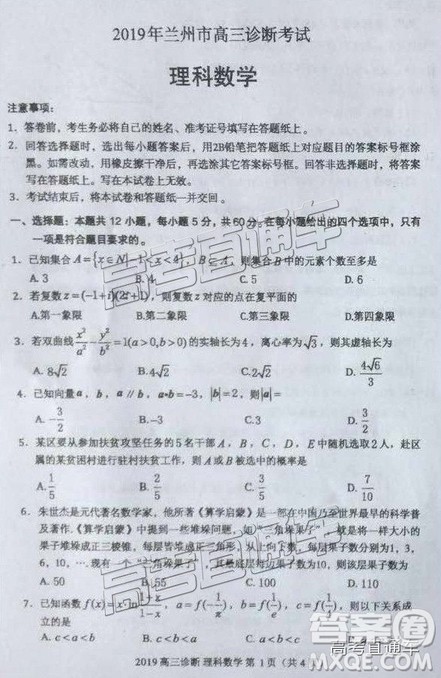 2019年兰州市高三诊断考试
理科数学
注意事项:
1. 答卷前,考生务必将自己的姓名、准考证号填写在答题纸上。
2. 回答选择题时,选出每小题答案后,用2B铅笔把答题纸上对应题目的答案标号框涂
黑。如需改动,用橡皮擦干净后,再选涂其它答案标号框。回答非选择题时,将答案
写在答题纸上。写在本试卷上无效。
3. 考试结束后,将本试卷和答题纸一并交回。
一、选择题:本题共 12 小题,每小题 5 分,共 60 分。在每小题给出的四个选项中,只有
一项是符合题目要求的。
1. 已知集合 A={x∈N|-1<x<4},B⊆A,则集合B中的元素个数至多是
A. 3 B. 4 C. 5 D. 6
2. 若复数 z=(-1+i)(2i+1),则复数 z 对应的点在复平面的
A.第一象限 B.第二象限 C.第三象限 D.第四象限
3. 若双曲线 x²/a² - y²/b² =1(a>0,b>0) 的实轴长为4,离心率为√3,则其虚轴长为
A. 8√2 B. 4√2 C. 2√2 D. 4√6/3
4. 已知向量 a,b,a∥b,a•b=-3,|b|=2,则|a|=
A. -3/2 B. -3 C. 3 D. 3/2
5. 某区要从参加扶贫攻坚任务的5名干部 A,B,C,D,E 中随机选取2人,赴区
属的某贫困村进行驻村扶贫工作,则 A 或 B 被选中的概率是
A. 1/5 B. 2/5 C. 3/5 D. 7/10
6. 朱世杰是元代著名数学家,他所著《算学启蒙》是一部在中国乃至世界最早的科学普
及著作.《算学启蒙》中提到一些堆垛问题,如“三角垛果子”,就是将一样大小的
果子堆垛成正三棱锥,每层皆堆成正三角形,从上向下数,每层果子数分别为1,3,
6,10,…现有一个“三角垛果子”,其最底层每边果子数为10,则该层果子数为
A. 50 B. 55 C. 100 D. 110
7. 已知函数 f(x)=
以下关系
成立的是
A. c<a<b
2019 高三诊断 理科数学 第 1 页(共 4
高考直通车
高考直通车